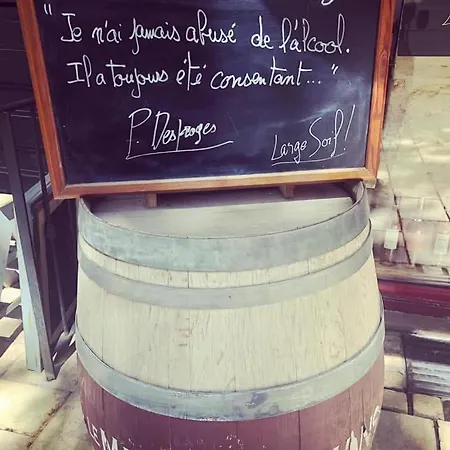 "Je n'ai jamais abusé de l'alcool.
Il a toujours été consentant..."
P. Desproges
Large Soif!